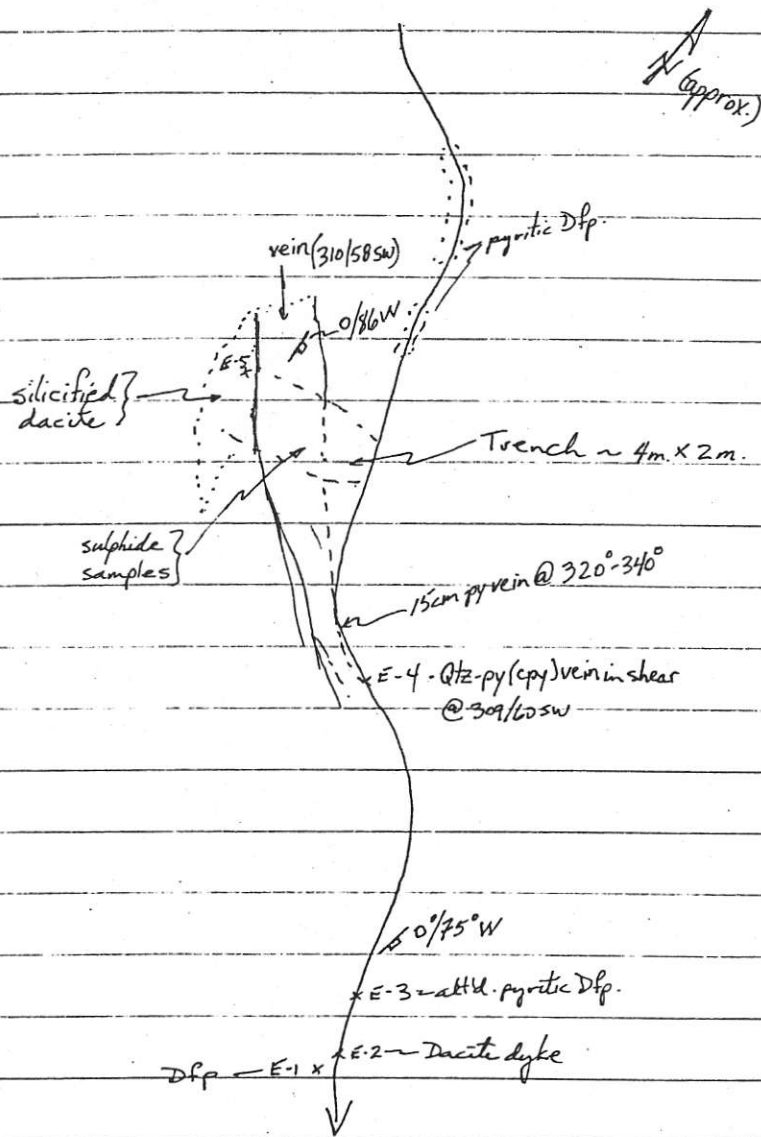 N
(approx.)
pyritic Dfp.
vein (310/58SW)
0/86W
E-5
silicified
dacite
Trench ~ 4m. x 2m.
sulphide
samples
15cm py vein @ 320°-340°
E-4 - Qtz-py (cpy) vein in shear
@ 309/60SW
0°/75°W
E-3 - alt'd. pyritic Dfp.
E-2 - Dacite dyke
Dfp - E-1